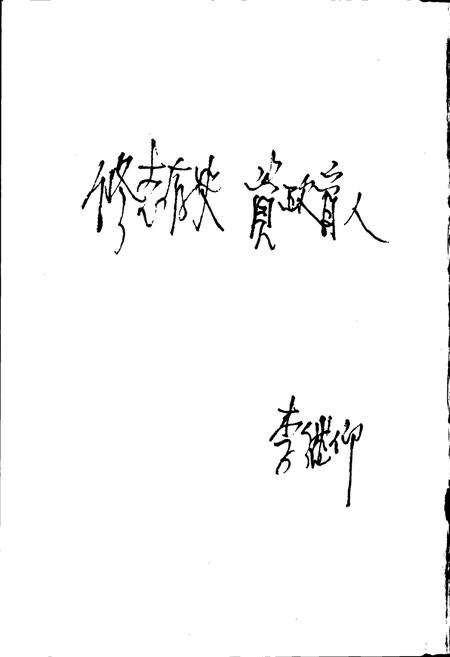 修志存史 资政育人
李继仰